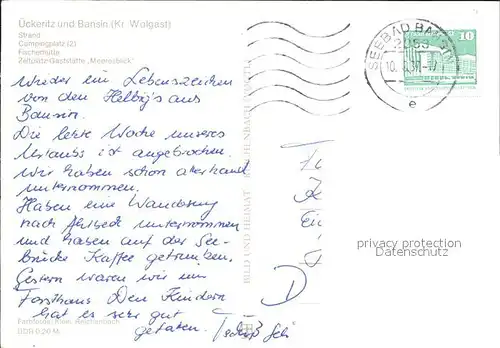 Ückeritz und Bansin (Kr. Wolgast)
Strand
Campingplatz (2)
Fischerhütte
Zeltplatz-Gaststätte „Meeresblick“
Wieder ein Lebenszeichen
von den Helbig's aus
Bansin.
Die letzte Woche unseres
Urlaubs ist angebrochen.
Wir haben schon allerhand
unternommen.
Haben eine Wanderung
nach Ahlbeck unternommen
und haben auf der See-
brücke Kaffee getrunken.
Gestern waren wir im
Forsthaus. Den Kindern
hat es sehr gut
gefallen.
BILD UND HEIMAT REICHENBACH
SEEBAD BANSIN
10
e
D
privacy protection
watermark